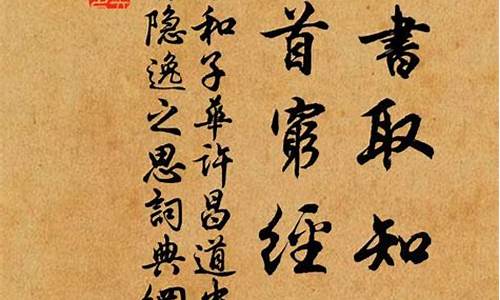 書取知
首窮經
和子華許昌道中
隱逸之思詞典網